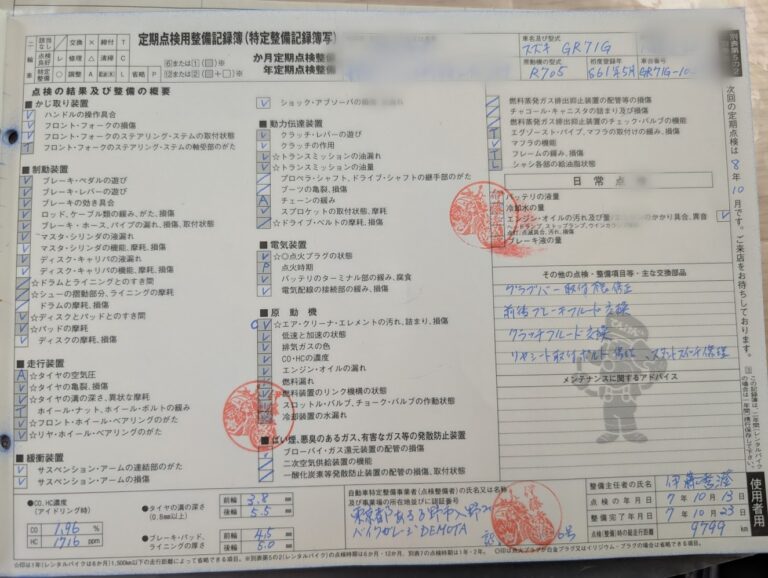 定期点検用整備記録簿(特定整備記録簿写)
か月定期点検整備
年定期点検整備
交換 × 締付 T
点検良好 レ 修理 △ 清掃 C
特定整備 ○ 調整 A 給油 L 省略 P
車名及び型式
スズキ GR71G
原動機の型式 R705
初度登録年 S61年5月
車台番号 GR71G-10
別表第5の2
次回の定期点検は 8年10月です。ご来店をお待ちしております。
点検の結果及び整備の概要
■かじ取り装置
ハンドルの操作具合
フロント・フォークの損傷
フロント・フォークのステアリング・ステムの取付状態
フロント・フォークのステアリング・ステムの軸受部のがた
■制動装置
ブレーキ・ペダルの遊び
ブレーキ・レバーの遊び
ブレーキの効き具合
ロッド、ケーブル類の緩み、がた、損傷
ブレーキ・ホース、パイプの漏れ、損傷、取付状態
マスタ・シリンダの液漏れ
マスタ・シリンダの機能、摩耗、損傷
ディスク・キャリパの液漏れ
ディスク・キャリパの機能、摩耗、損傷
☆ドラムとライニングとのすき間
☆シューの摺動部分、ライニングの摩耗
ドラムの摩耗、損傷
☆ディスクとパッドとのすき間
☆パッドの摩耗
ディスクの摩耗、損傷
■走行装置
☆タイヤの空気圧
☆タイヤの亀裂、損傷
☆タイヤの溝の深さ、異状な摩耗
ホイール・ナット、ホイール・ボルトの緩み
☆フロント・ホイール・ベアリングのがた
☆リヤ・ホイール・ベアリングのがた
■緩衝装置
サスペンション・アームの連結部のがた
サスペンション・アームの損傷
ショック・アブソーバの損傷
■動力伝達装置
クラッチ・レバーの遊び
クラッチの作用
☆トランスミッションの油漏れ
☆トランスミッションの油量
プロペラ・シャフト、ドライブ・シャフトの継手部のがた
ブーツの亀裂、損傷
チェーンの緩み
スプロケットの取付状態、摩耗
☆ドライブ・ベルトの摩耗、損傷
■電気装置
☆○点火プラグの状態
点火時期
バッテリのターミナル部の緩み、腐食
電気配線の接続部の緩み、損傷
■原動機
☆エア・クリーナ・エレメントの汚れ、詰まり、損傷
低速と加速の状態
排気ガスの色
CO・HCの濃度
エンジン・オイルの漏れ
燃料漏れ
燃料装置のリンク機構の状態
スロットル・バルブ、チョーク・バルブの作動状態
冷却装置の水漏れ
■ばい煙、悪臭のあるガス、有害なガス等の発散防止装置
ブローバイ・ガス還元装置の配管の損傷
二次空気供給装置の機能
一酸化炭素等発散防止装置の配管の損傷、取付状態
燃料蒸発ガス排出抑止装置の配管等の損傷
チャコール・キャニスタの詰まり及び損傷
燃料蒸発ガス排出抑止装置のチェック・バルブの機能
エグゾースト・パイプ、マフラの取付けの緩み、損傷
マフラの機能
フレームの緩み、損傷
シャシ各部の給油脂状態
日常点
バッテリの液量
冷却水の量
エンジン・オイルの汚れ及び量
のかかり具合、異音
ブレーキ液の量
その他の点検・整備項目等・主な交換部品
グラブバー取付
前後ブレーキフルード交換
クラッチフルード交換
メンテナンスに関するアドバイス
●CO、HC濃度
(アイドリング時)
CO 1.96 %
HC 1716 ppm
●タイヤの溝の深さ
(0.8mm以上)
前輪 3.8 mm
後輪 5.5 mm
●ブレーキ・パッド、ライニングの厚さ
前輪 4.5 mm
後輪 5.0 mm
自動車特定整備事業者(点検整備者)の氏名又は名称及び事業場の所在地並びに認証番号
バイクガレージDEMOTA
整備主任者の氏名
点検の年月日 7年10月13日
整備完了年月日 7年10月23日
点検(整備)時の総走行距離 9799 km
使用者用